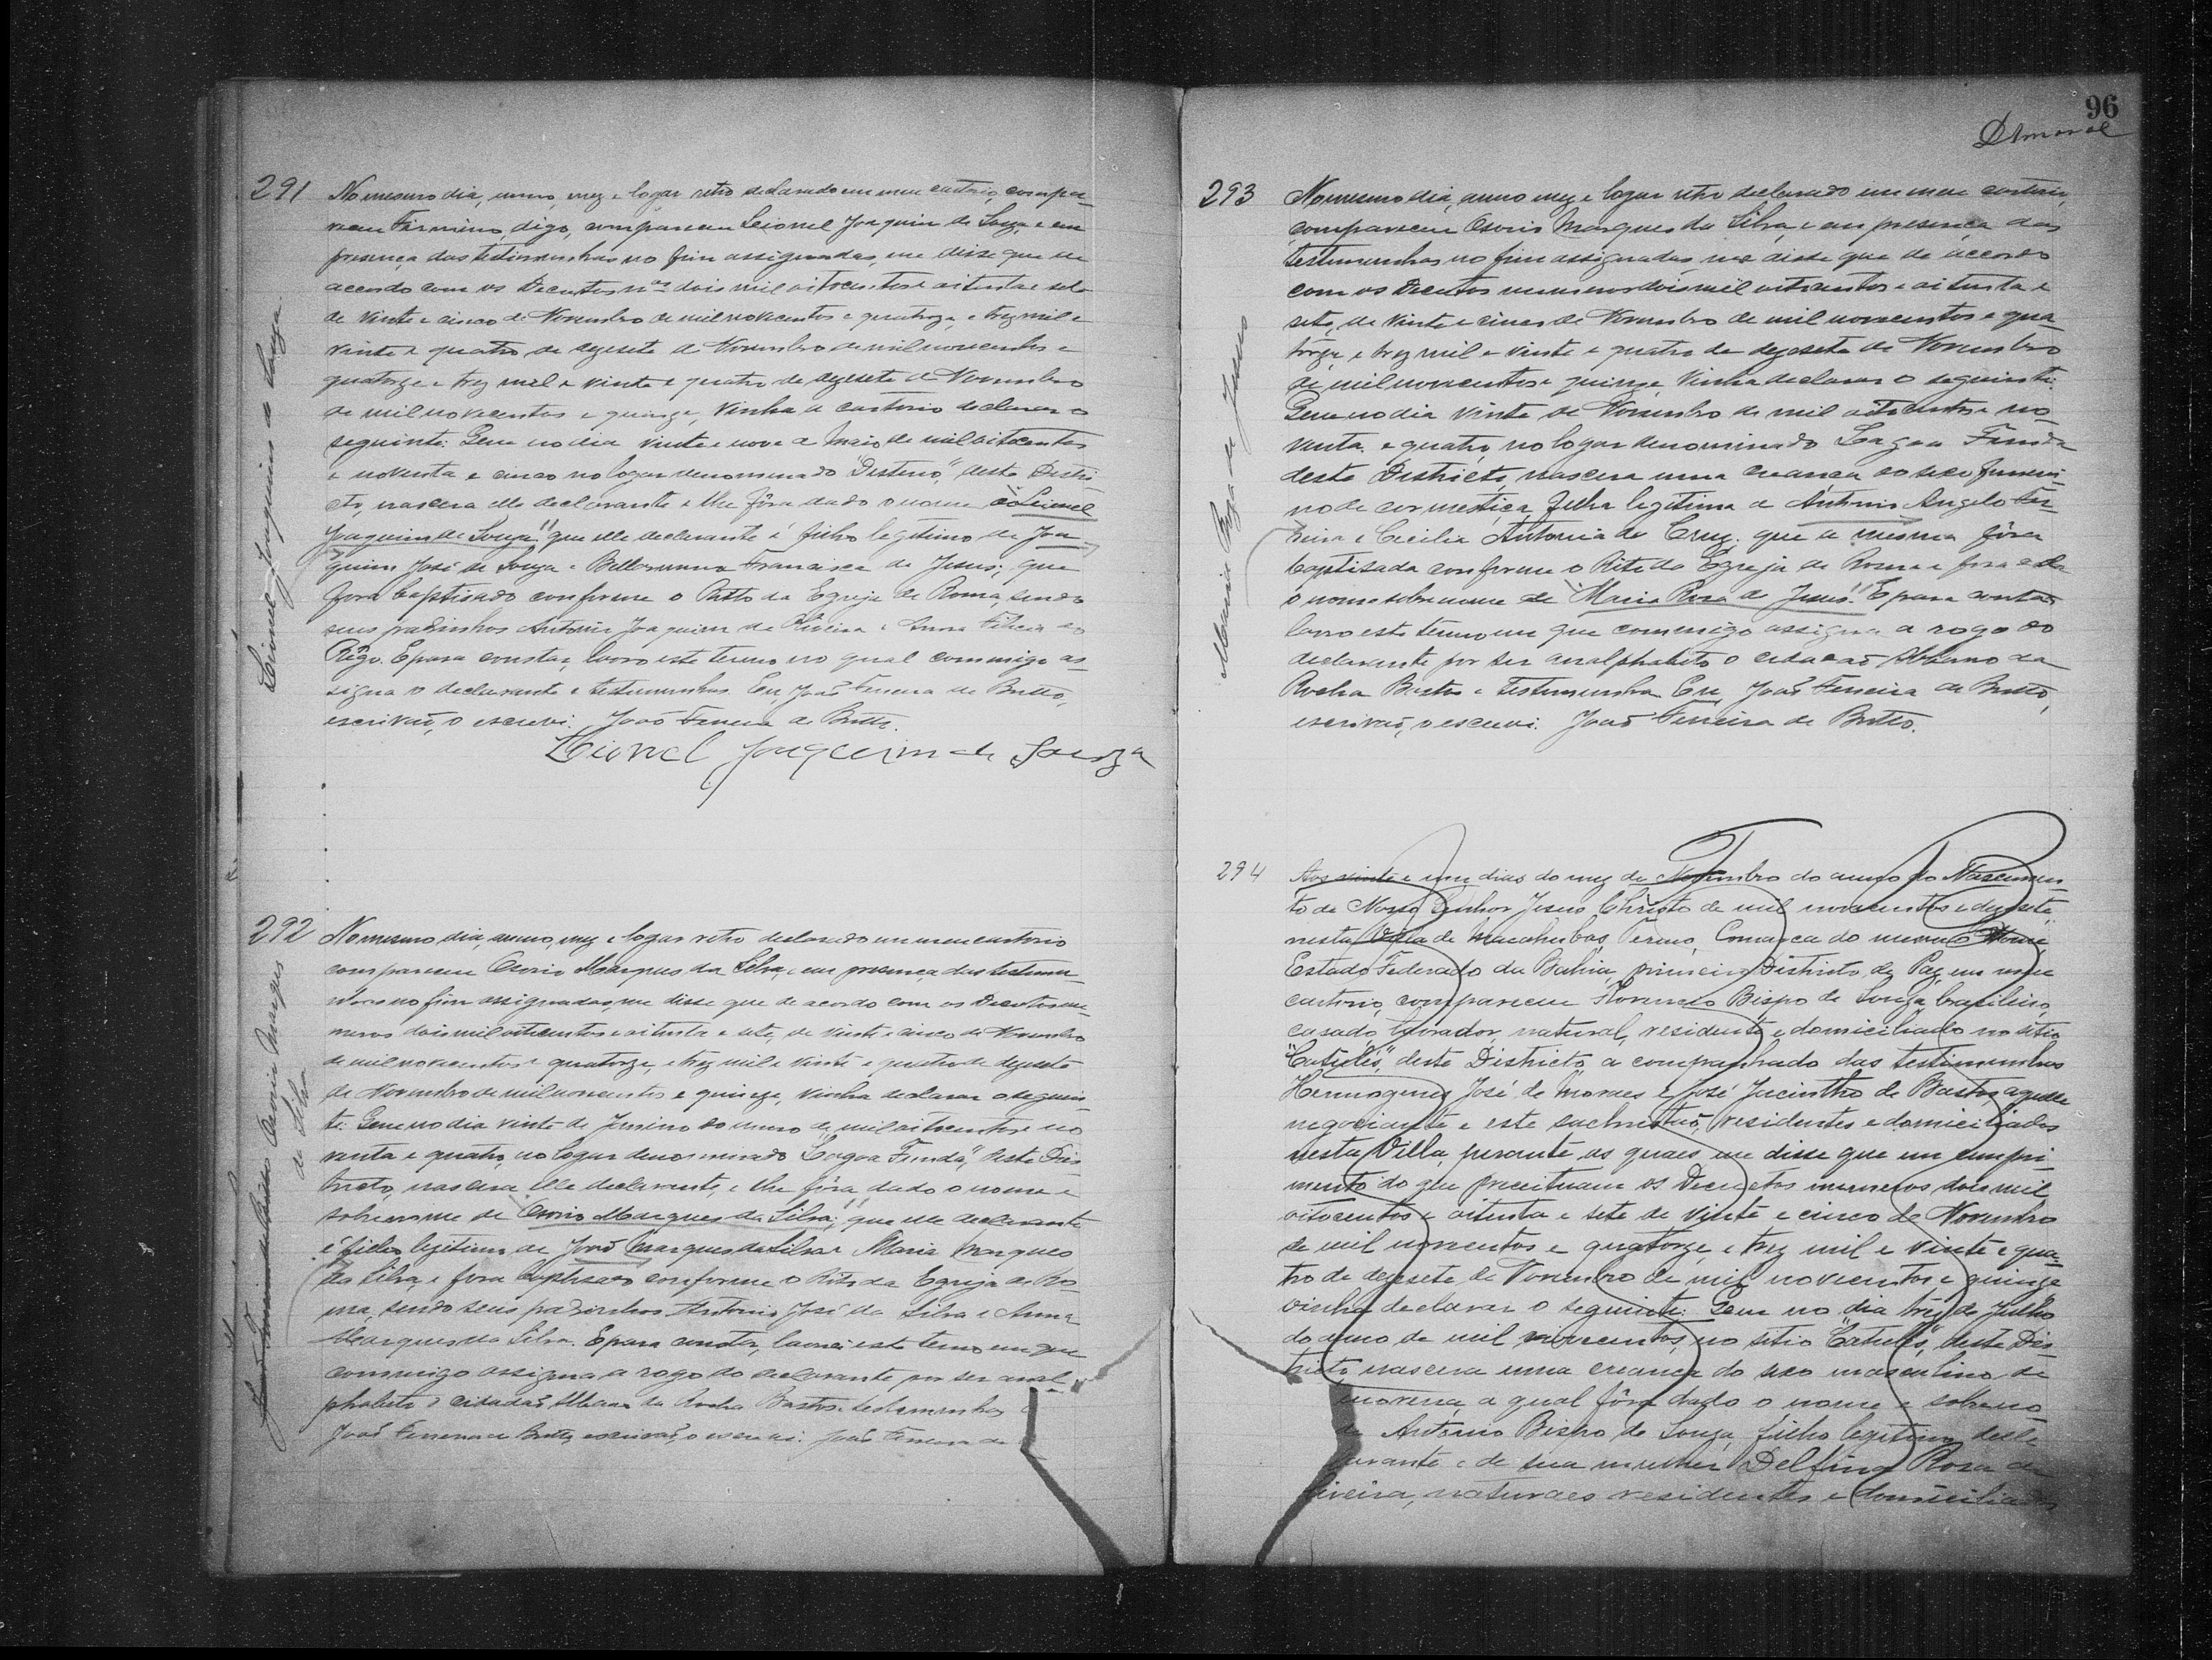 291
Leionel Joaquim de Souza
No mesmo dia, anno, mez e logar retro declarado em meu cartorio, compa-
receu Firmino, digo, compareceu Leionel Joaquim de Souza, e em
presença das testimunhas no fim assignadas, me disse que de
accordo com os Decretos nos dois mil oitocentos e oitenta e sete
de vinte e cinco de Novembro de mil novecentos e quatorze, e trez mil e
vinte e quatro de dezesete de Novembro de mil novecentos e
quatorze e trez mil e vinte e quatro de dezesete de Novembro
de mil novecentos e quinze, vinha a cartorio declarar o
seguinte: Que no dia vinte e nove de Maio de mil oitocentos
e noventa e cinco no logar denominado "Disterro," deste Distri-
cto, nascera elle declarante e lhe fôra dado o nome de Leionel
Joaquim de Souza" que elle declarante é filho legitimo de Joa-
quim José de Souza e Bellarmina Francisca de Jesus; que
fora baptisado conforme o Ritto da Egreja de Roma, sendo
seus padrinhos Antonio Joaquim de Oliveira e Anna Felicia do
Rêgo. E para constar, lavro este termo no qual commigo as-
signa o declarante e testimunhas. Eu, João Ferreira de Britto,
escrivão, o escrevi. João Ferreira de Britto.
Leionel Joaquim de Souza
292
Osorio Marques
da Silva
No mesmo dia, anno, mez e logar retro declarado em meu cartorio
compareceu Osorio Marques da Silva, e em presença das testemu-
nhas no fim assignadas, me disse que de acordo com os Decretos nu-
meros dois mil oitocentos e oitenta e sete, de vinte e cinco de Novembro
de mil novecentos e quatorze, e trez mil e vinte e quatro de dezesete
de Novembro de mil novecentos e quinze, vinha declarar o seguin-
te: Que no dia vinte de Junho do anno de mil oitocentos e no-
venta e quatro, no logar denominado "Lagoa Funda," deste Dis-
tricto, nascera elle declarante, e lhe fôra dado o nome e
sobrenome de "Osorio Marques da Silva;" que elle declarante
é filho legitimo de João Marques da Silva e Maria Marques
da Silva, e fora baptisado conforme o Rito da Egreja de Ro-
ma, sendo seus padrinhos Antonio José da Silva e Anna
Marques da Silva. E para constar, lavrei este termo em que
commigo assigna a rogo do declarante, por ser anal-
phabeto o cidadão Albano da Rocha Bastos e testemunhas
João Ferreira de Britto, escrivão, o escrevi. João Ferreira de
96
DAmaral
293
Maria Roza de Jesus
No mesmo dia, anno mez e logar retro declarado em meu cartorio,
compareceu Osorio Marques da Silva, e em presença das
testemunhas no fim assignadas, me disse que de accordo
com os Decretos numeros dois mil oitocentos e oitenta e
sete, de vinte e cinco de Novembro de mil novecentos e qua-
torze, e trez mil e vinte e quatro de dezesete de Novembro
de mil novecentos e quinze, vinha declarar o seguinte:
Que no dia vinte de Novembro de mil oitocentos e no-
venta e quatro, no logar denominado Lagoa Funda
deste Districto, nascera uma creança do sexo femeni-
no de cor mestiça, filha legitima de Antonio Angelo Fer-
reira e Cecilia Antonia da Cruz. que a mesma fôra
baptisada conforme o Rito da Egreja de Roma e fora dado
o nome sobrenome de "Maria Roza de Jesus". E para contar
lavro este termo em que commigo assigna a rogo do
declarante por ser analphabeto o cidadão Albano da
Rocha Bastos e testimunha. Eu, João Ferreira de Britto,
escrivão, o escrevi. João Ferreira de Britto.
294
Aos vinte e um dias do mez de Novembro do anno do Nascimen-
to de Nosso Senhor Jesus Christo de mil novecentos e dezesete,
nesta Villa de Macahubas, Termo, Comarca do mesmo Nome
Estado Federado da Bahia, primeiro Districto de Paz, em meu
cartorio, compareceu Florencio Bispo de Souza, brasileiro,
casado, lavrador, natural, residente e domiciliado no sitio
"Catulés," deste Districto, a companhado das testimunhas
Hermogenes José de Moraes e José Jacintho de Bastos, aquelle
negociante e este sachristão, residentes e domiciliados
nesta Villa, perante as quaes me disse que em cumpri-
mento do que preceituam os Decretos numeros dois mil
oitocentos e oitenta e sete de vinte e cinco de Novembro
de mil novecentos e quatorze, e trez mil e vinte e qua-
tro de dezesete de Novembro de mil novecentos e quinze
vinha declarar o seguinte: Que no dia trez de Julho
do anno de mil novecentos, no sitio "Catulés," deste Dis-
tricto nascera uma creança do sexo masculino de
morena, a qual fôra dado o nome e sobreno
de Antonio Bispo de Souza, filho legitimo delle
arante e de sua mulher Delfina Rosa de
liveira, naturaes residentes e domiciliados